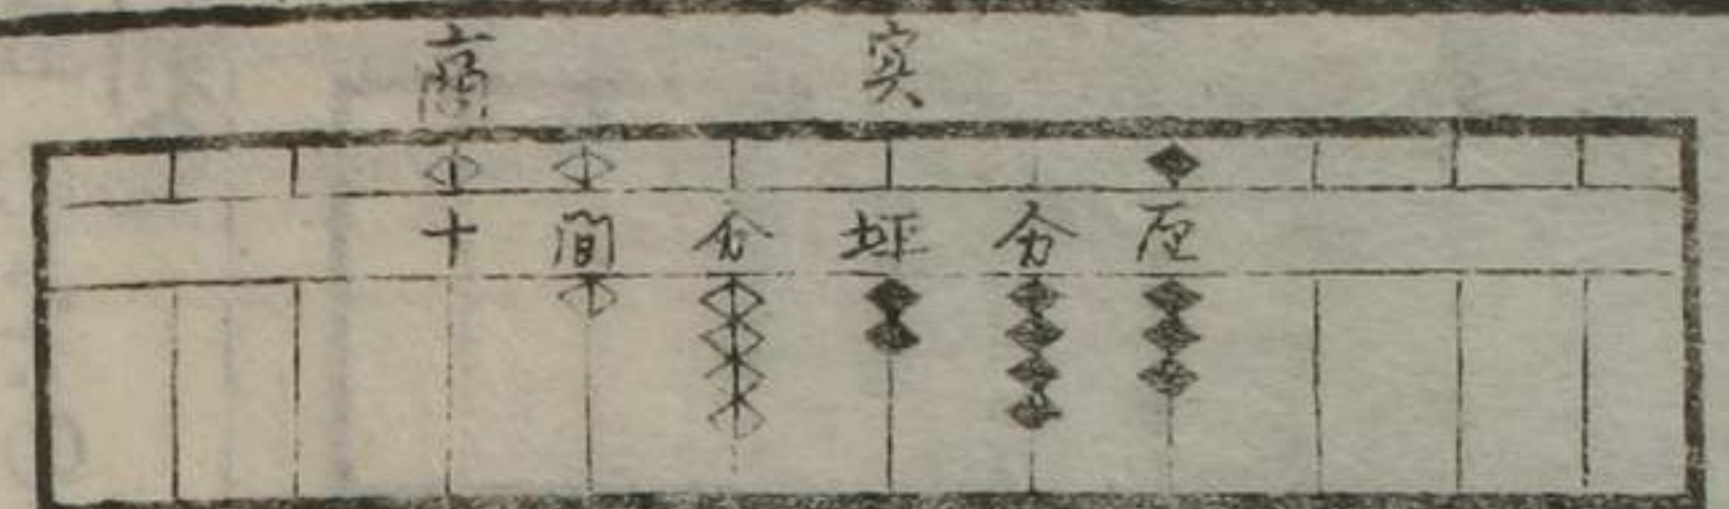 商 実
十 間 分 坪 分 厘